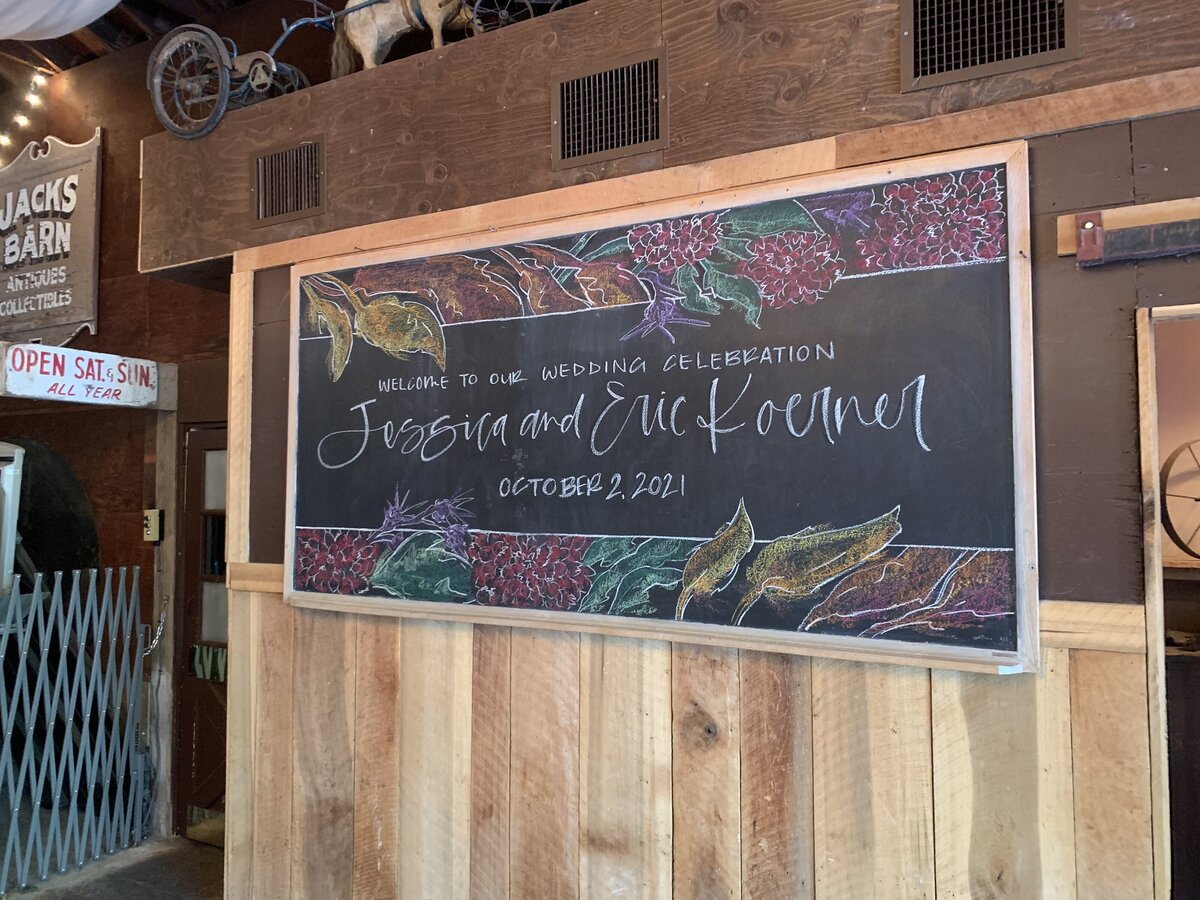 JACKS
BARN
ANTIQUES
COLLECTIBLES
OPEN SAT. & SUN.
ALL YEAR
WELCOME TO OUR WEDDING CELEBRATION
Jessica and Eric Koerner
OCTOBER 2, 2021